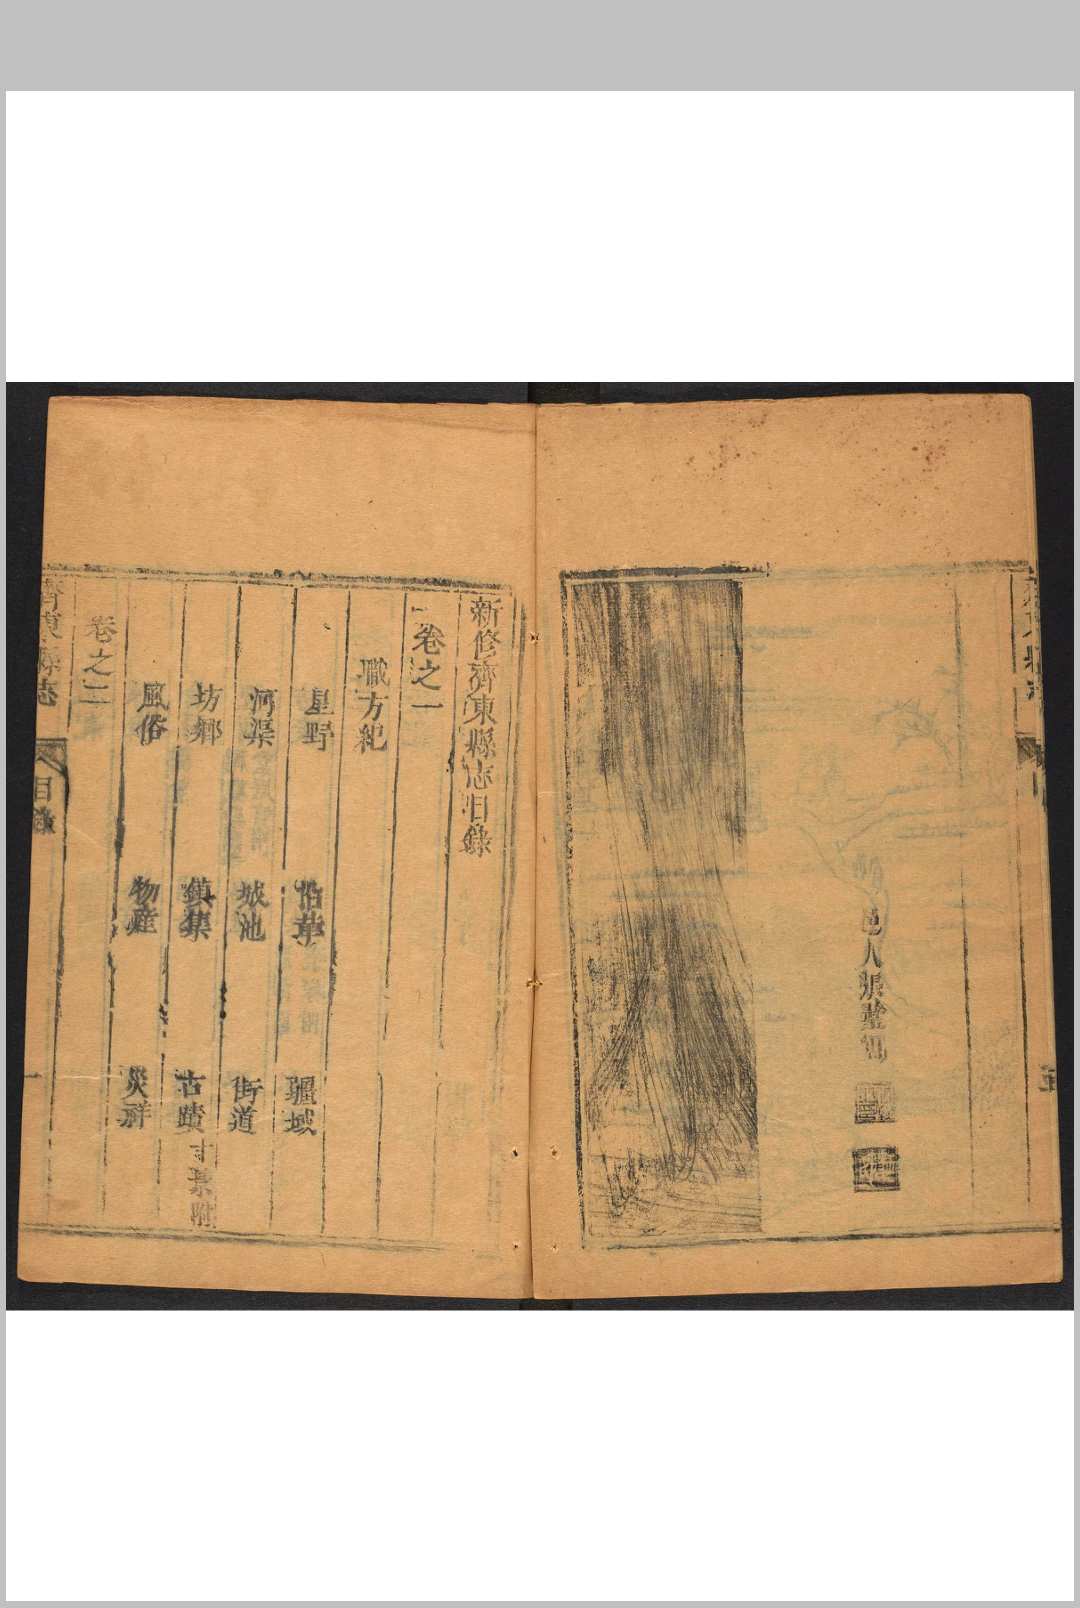 邑人張
新修齊東縣志目錄
卷之一
職方紀
星野 沿革 疆域
河渠 城池 街道
坊鄉 鎮集 古蹟 景附
風俗 物產 災祥
卷之二
齊東縣志 目錄 一